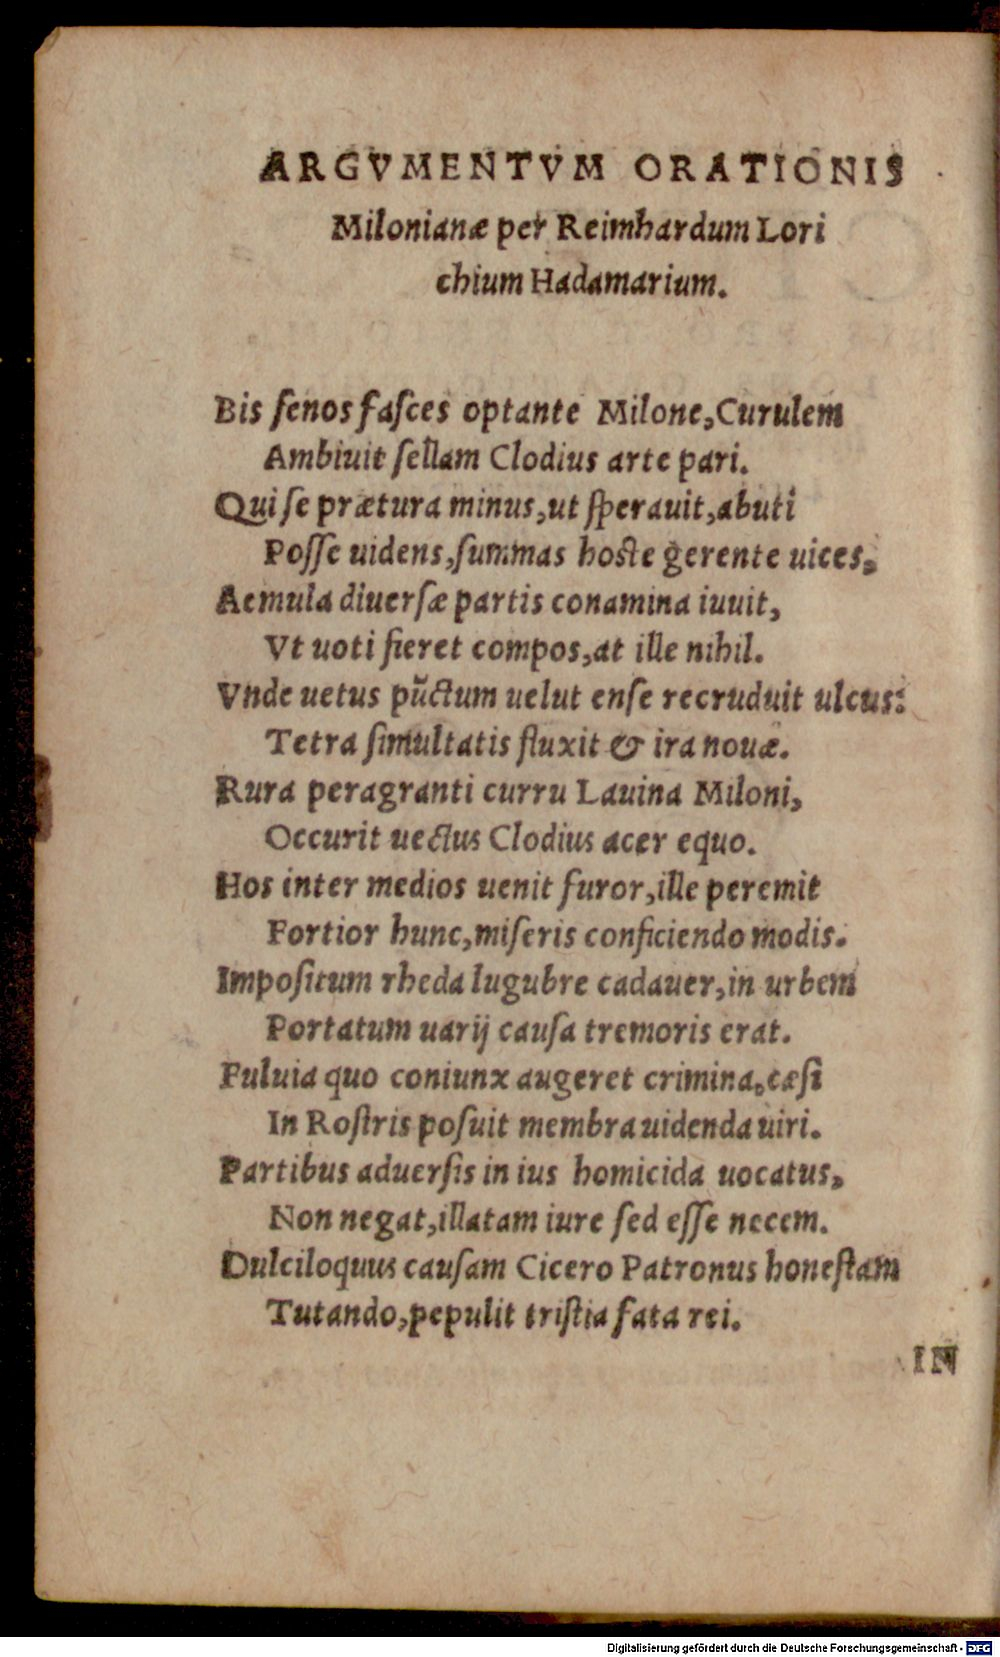 ARGVMENTVM ORATIONIS
Milonianæ per Reimhardum Lori
chium Hadamarium.
Bis ſenos faſces optante Milone, Curulem
Ambiuit ſellam Clodius arte pari.
Qui ſe prætura minus, ut ſperauit, abuti
Poſſe uidens, ſummas hoste gerente uices,
Aemula diuerſæ partis conamina iuuit,
Vt uoti fieret compos, at ille nihil.
Vnde uetus pũctum uelut enſe recruduit ulcus:
Tetra ſimultatis fluxit & ira nouæ.
Rura peragranti curru Lauina Miloni,
Occurit uectus Clodius acer equo.
Hos inter medios uenit furor, ille peremit
Fortior hunc, miſeris conficiendo modis.
Impoſitum rheda lugubre cadauer, in urbem
Portatum uarij cauſa tremoris erat.
Fuluia quo coniunx augeret crimina, cæſi
In Roſtris poſuit membra uidenda uiri.
Partibus aduerſis in ius homicida uocatus,
Non negat, illatam iure ſed eſſe necem.
Dulciloquus cauſam Cicero Patronus honeſtam
Tutando, pepulit triſtia fata rei.
IN
Digitalisierung gefördert durch die Deutsche Forschungsgemeinschaft - DFG